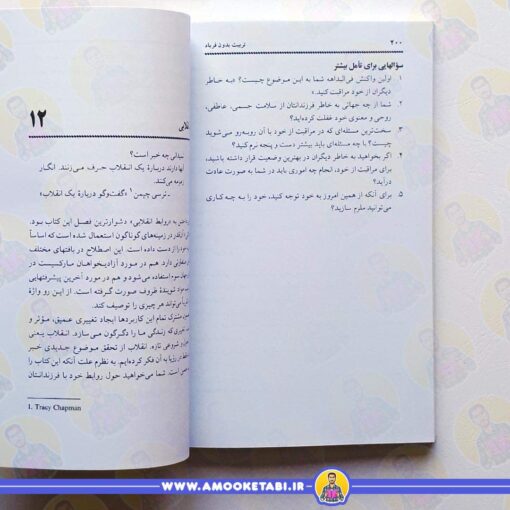 ۲۰۰
تربیت بدون فریاد
سؤالهایی برای تأمل بیشتر
۱ اولین واکنش فی‌البداهه شما به این موضوع چیست؟ «به خاطر
دیگران از خود مراقبت کنید.»
۲ شما از چه جهاتی به خاطر فرزندانتان از سلامت جسمی، عاطفی،
روحی و معنوی خود غفلت کرده‌اید؟
۳ سخت‌ترین مسئله‌ای که در مراقبت از خود با آن روبه‌رو می‌شوید
چیست؟ با چه مسأله‌ای باید بیشتر دست و پنجه نرم کنید؟
۴ اگر بخواهید به خاطر دیگران در بهترین وضعیت قرار داشته باشید،
برای مراقبت از خود، انجام چه اموری باید در شما به صورت عادت
درآید؟
۵ برای آنکه از همین امروز به خود توجه کنید، خود را به چه کاری
می‌توانید ملزم سازید؟
۱۲
انقلابی
نمی‌دانی چه خبر است؟
آنها دارند دربارهٔ یک انقلاب حرف می‌زنند. انگار
زمزمه می‌کنند.
ـ تریسی چپمن۱ «گفت‌وگو دربارهٔ یک انقلاب»
به «روابط انقلابی» دشوارترین فصل این کتاب بود.
در زمینه‌های گوناگون استعمال شده است که اساساً
خود را از دست داده است. این اصطلاح در بافتهای مختلف
متفاوتی دارد. هم در مورد آزادیخواهان مارکسیست در
جهان سوم استفاده می‌شود و هم در مورد آخرین پیشرفتهایی
شویندهٔ ظروف صورت گرفته است. از این رو واژهٔ
می‌تواند هر چیزی را توصیف کند.
مشترک تمام این کاربردها ایجاد تغییری عمیق، مؤثر و
تغییری که زندگی ما را دگرگون می‌سازد. انقلاب یعنی
و شروعی تازه. انقلاب از تحقق موضوع جدیدی خبر
در رؤیا به آن فکر کرده‌ایم. به نظرم علت آنکه این کتاب را
است. شما می‌خواهید حول روابط خود با فرزندانتان
1. Tracy Chapman
WWW.AMOOKETABI.IR